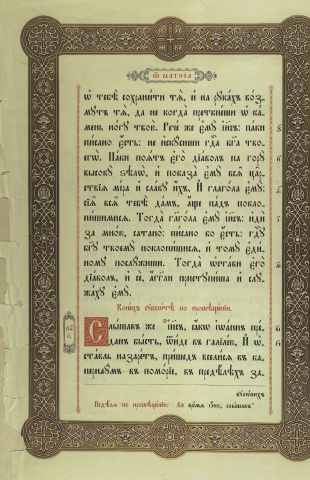 Ѿ МАТѲЕА
ѡ тебѣ сохранити тѧ, и на рꙋкахъ воз‑
мꙋтъ тѧ, да не когда преткнеши ѡ ка‑
мень ногꙋ твою. Рече же ємꙋ іи҃съ: паки
писано єсть: не искꙋсиши гдⷭ҇а бг҃а тво‑
егѡ. Паки поѧтъ єго діаволъ на горꙋ
высокꙋ ѕѣлѡ, и показа ємꙋ всѧ цар‑
ствіѧ міра и славꙋ ихъ, И глагола ємꙋ:
сіѧ всѧ тебѣ дамъ, аще падъ покло‑
нишимисѧ. Тогда глагола ємꙋ іи҃съ: иди
за мною, сатано: писано бо єсть: гдⷭ҇ꙋ
бг҃ꙋ твоемꙋ поклонишисѧ, и томꙋ єди‑
номꙋ послꙋжиши. Тогда ѡстави єго
діаволъ, и се, агг҃ли пристꙋпиша и слꙋ‑
жахꙋ ємꙋ.
Конецъ сꙋббѡтѣ по просвѣщеніи.
Слышавъ же іи҃съ, ꙗкѡ іѡаннъ пре‑
данъ бысть, ѿиде въ галілею. И ѡ‑
ставль назаретъ, пришедъ вселисѧ въ ка‑
пернаꙋмъ въ поморіе, въ предѣлѣхъ за‑
вꙋлѡнихъ
Недѣлѧ по просвѣщеніи: Во времѧ ѻно, слышавъ